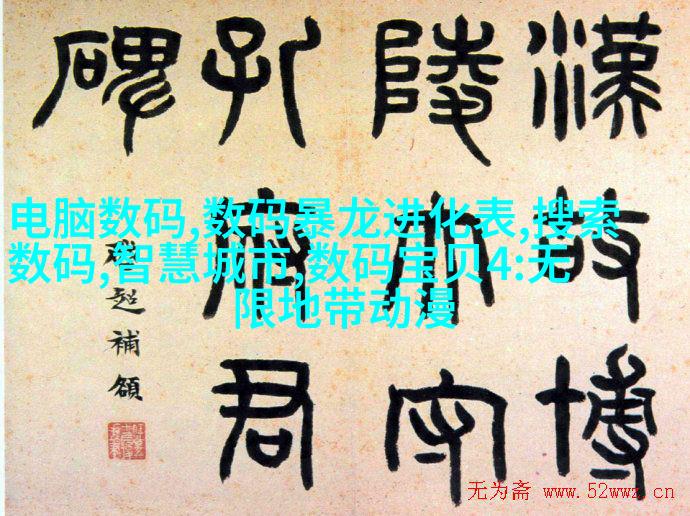 漢故博
陵太守
孔府君
碑
超補額
电脑数码,数码暴龙进化表,搜索
数码,智慧城市,数码宝贝4:无
限地带动漫
无为斋 www.52wwz.cn